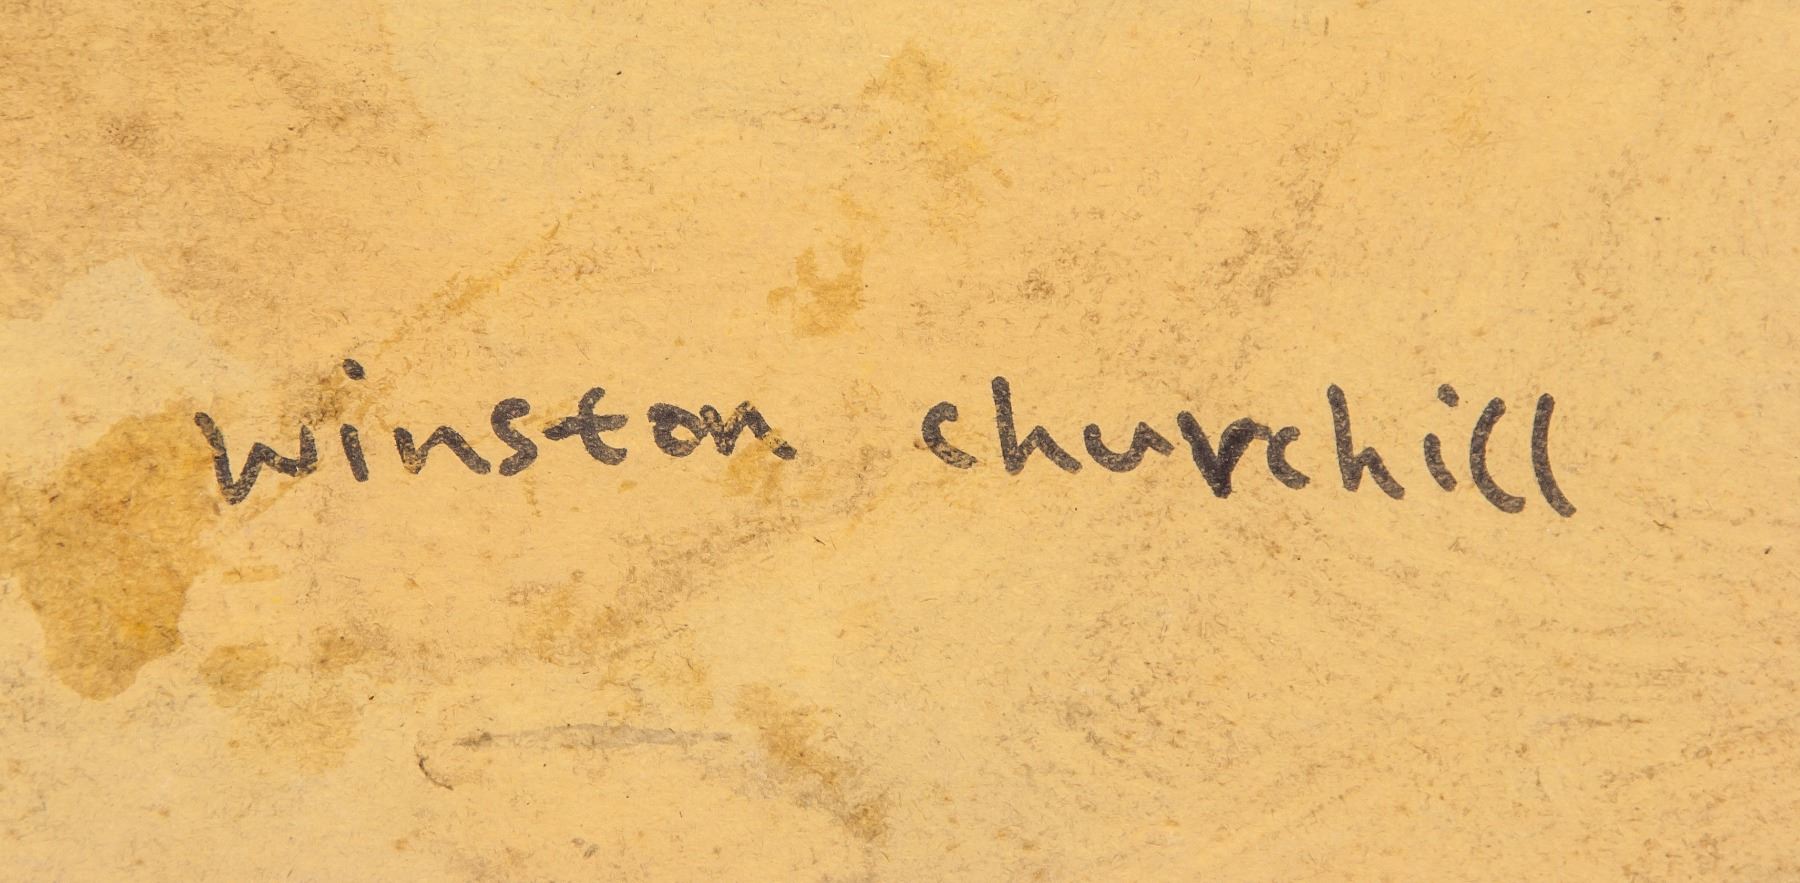 Winston churchill